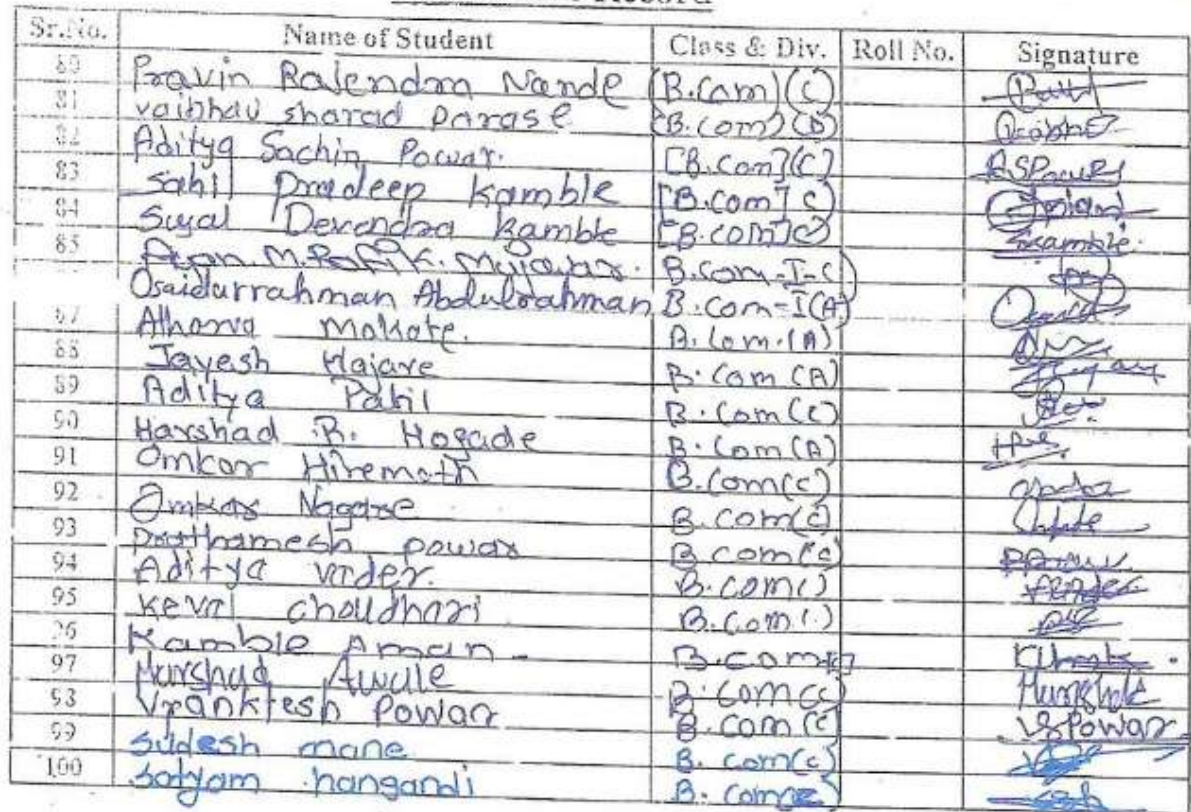 Record
Sr.No. Name of Student Class & Div. Roll No. Signature
80 Pravin Rajendra Nande (B.Com)(C)
81 vaibhav sharad parase (B.Com)(D)
82 Aditya Sachin Powar. [B.Com](C) ASPowar
83 Sahil Pradeep Kamble [B.Com] C)
84 Suyal Devendra Kamble [B.COM]C) Skamble.
85 M. Rafik. Mujawar. B.Com-I-C)
Osaidurrahman Abdulrahman B.Com-I(A)
87 Atharva Makote. B.Com.(A)
88 Jayesh Hajare B.Com (A)
89 Aditya Patil B.Com(C)
90 Harshad .R. Hogade B.Com(A)
91 Omkar Hiremath B.Com(C)
92 Omkar Nagare B.COM(C)
93 Prathamesh powar B.COM(C)
94 Aditya vader. B.COM()
95 Keval choudhari B.COM(.)
96 Kamble Aman - B.COM(C)
97 Harshad Awale B.Com(C)
98 Vyanktesh Powar B.COM(C) VSPowar
99 Sudesh mane B.Com(C)
100 Satyam hangandi B.Com(C)